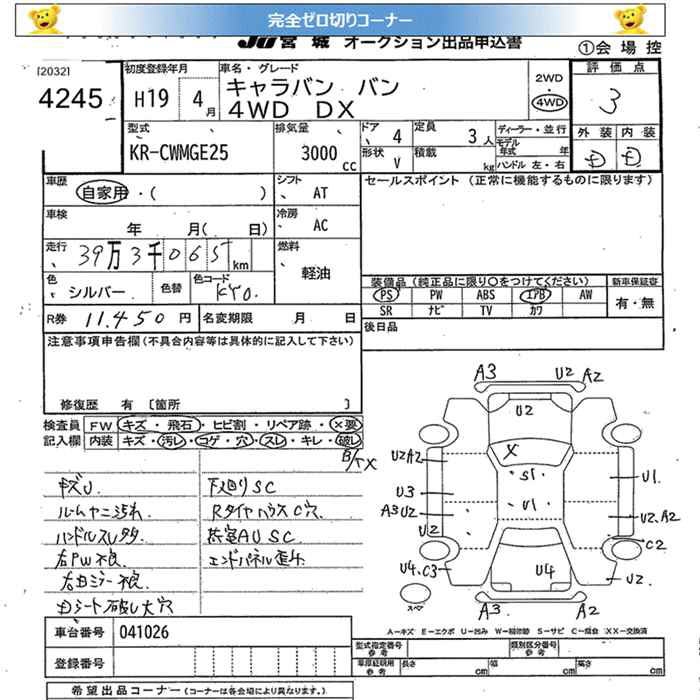 完全ゼロ切りコーナー
JU宮城 オークション出品申込書
①会場控
[2032]
4245
初度登録年月
H19 4月
車名・グレード
キャラバン バン
4WD DX
2WD
4WD
評価点
3
外装 内装
D D
型式
KR-CWMGE25
排気量
3000 cc
ドア 4
形状 V
定員 3人
積載 kg
ディーラー・並行
モデル年式 年
ハンドル 左・右
車歴
自家用・( )
シフト
AT
セールスポイント (正常に機能するものに限ります)
車検
年 月( 日)
冷房
AC
走行
39万3千065km
燃料
軽油
色
シルバー
色替
色コード
KY0.
装備品(純正品に限り○をつけてください)
PS PW ABS エアB AW
SR ナビ TV カワ
新車保証書
有・無
R券 11.450円
名変期限 月 日
後日品
注意事項申告欄(不具合内容等は具体的に記入して下さい)
修復歴 有 [箇所 ]
検査員記入欄
FW キズ・飛石・ヒビ割・リペア跡・×要
内装 キズ・汚れ・コゲ・穴・スレ・キレ・破レ
キズU
ルームヤニ汚れ
ハンドルスレ多
右PW不良
右Dミラー不良
Dシート破レ大穴
下廻りSC
RタイヤハウスC穴
荷室AUSC
エンドパネル歪み
A3 U2 A2
U2
X
S1
U1
U2A2
U3
A3U2
U2
U4.C3
U1
U2.A2
C2
U2
U4
スペ
A3 A2
A=キズ E=エクボ U=凹み W=補修跡 S=サビ C=腐食 XX=交換済
車台番号 041026
登録番号
型式指定番号 参考
類別区分番号 参考
車庫証明用 参考 長さ cm 幅 cm 高さ cm
希望出品コーナー(コーナーは各会場により異なります。)